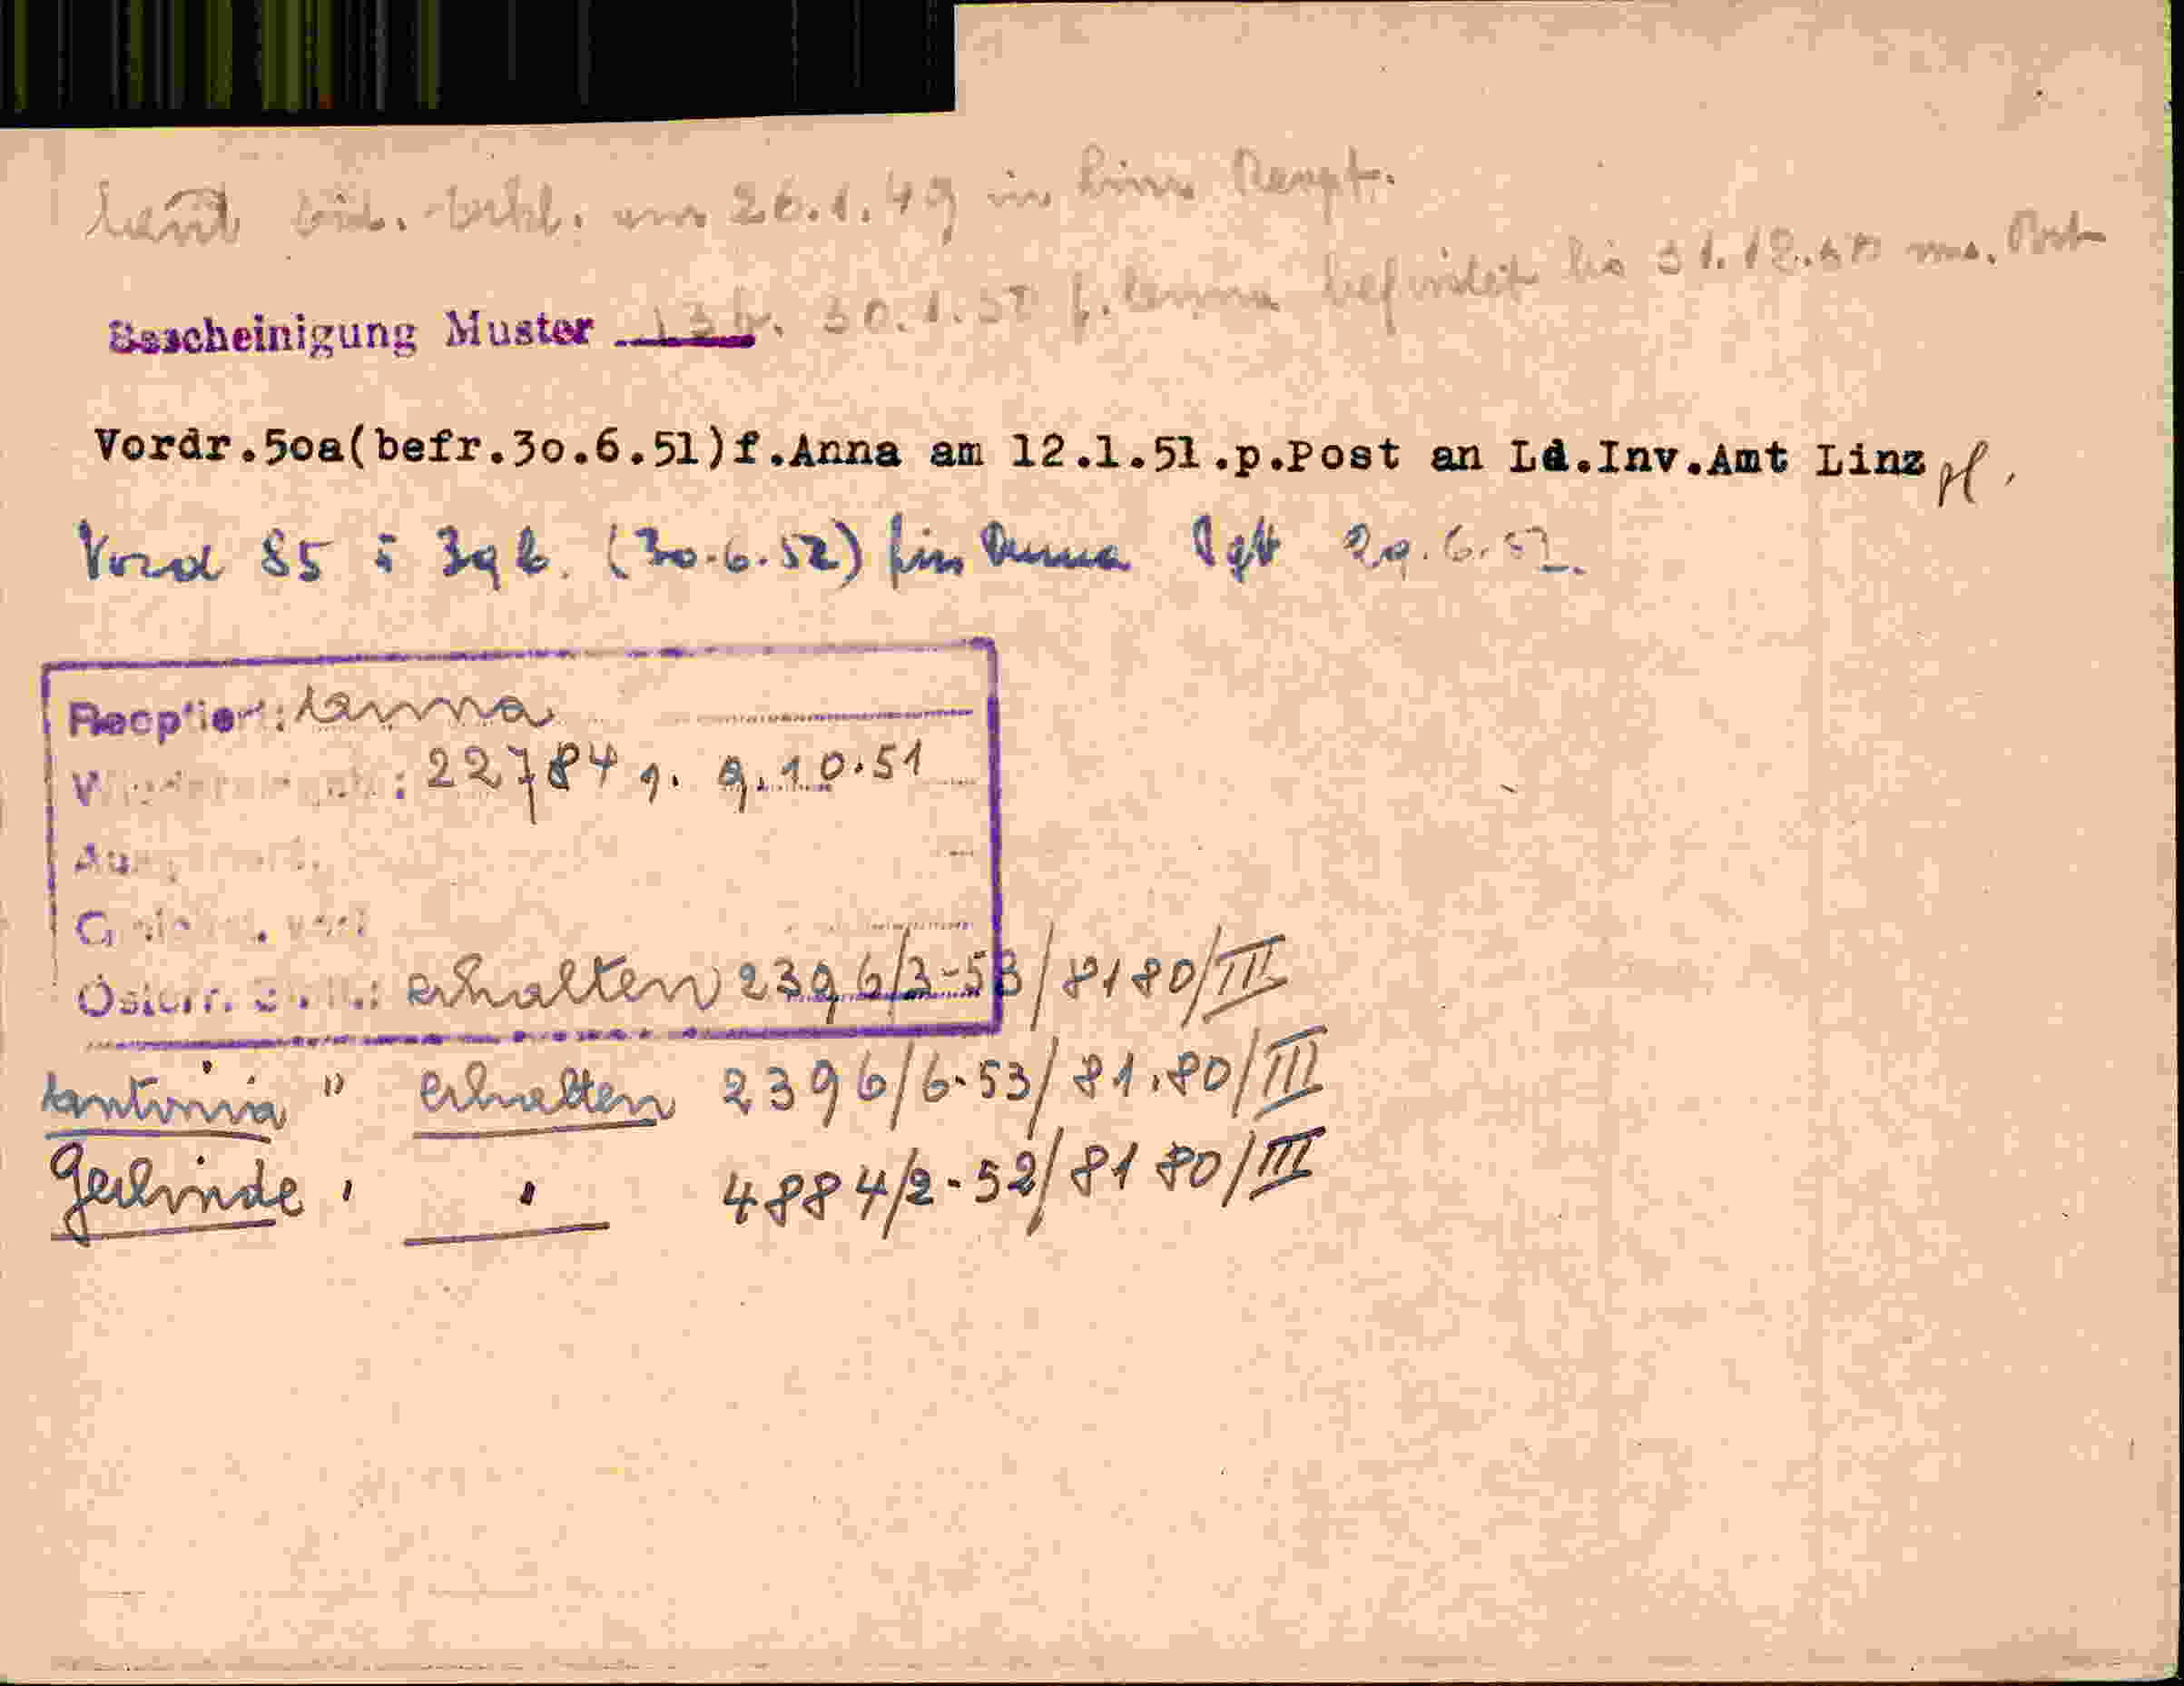 laut eid. Erkl. am 26.1.49 in Linz
befristet bis 31.12.50 Post
Bescheinigung Muster 13b. 30.1.50 f. Anna
Vordr.50a(befr.30.6.51)f.Anna am 12.1.51.p.Post an Ld.Inv.Amt Linz
Vord 85 39 b. (30.6.52) für Anna 29.6.51.
Recptiert: Anna
22784 9.10.51
Österr. erhalten 2396/3-53/8180/III
Antonia " erhalten 2396/6-53/81.80/III
Gerlinde " " 4884/2-52/8180/III